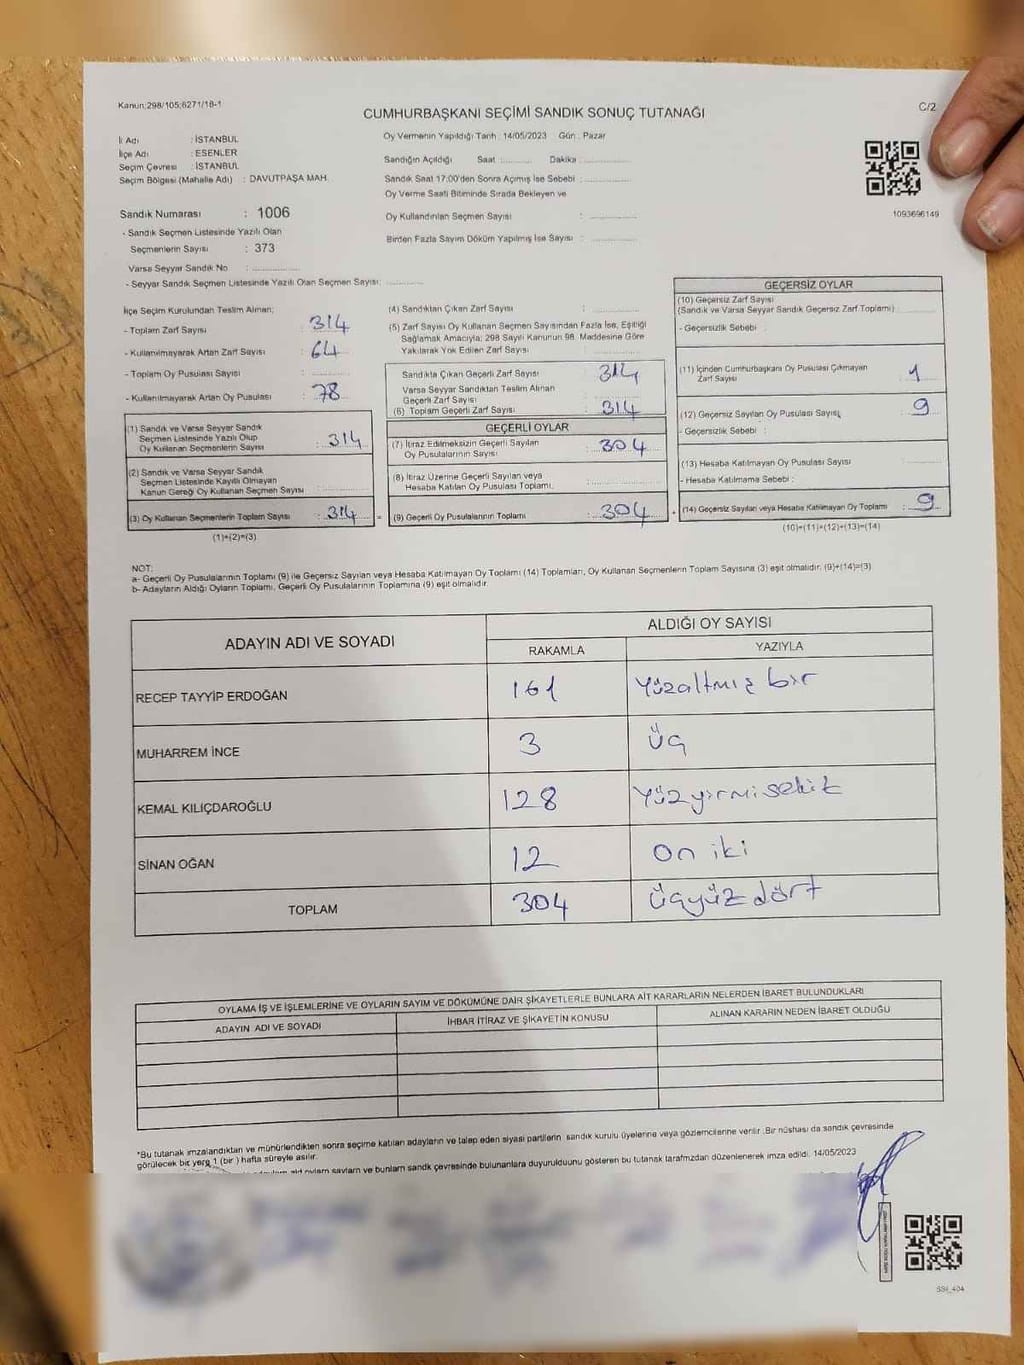 Kanun;298/105;6271/18-1
C/2
CUMHURBAŞKANI SEÇİMİ SANDIK SONUÇ TUTANAĞI
İl Adı : İSTANBUL
İlçe Adı : ESENLER
Seçim Çevresi : İSTANBUL
Seçim Bölgesi (Mahalle Adı) : DAVUTPAŞA MAH.
Oy Vermenin Yapıldığı Tarih : 14/05/2023 Gün : Pazar
Sandığın Açıldığı Saat :............ Dakika :............
Sandık Saat 17:00'den Sonra Açımış İse Sebebi :............
Oy Verme Saati Bitiminde Sırada Bekleyen ve
Oy Kullandırılan Seçmen Sayısı :............
Birden Fazla Sayım Döküm Yapılmış İse Sayısı :............
1093696149
Sandık Numarası : 1006
- Sandık Seçmen Listesinde Yazılı Olan
Seçmenlerin Sayısı : 373
Varsa Seyyar Sandık No :............
- Seyyar Sandık Seçmen Listesinde Yazılı Olan Seçmen Sayısı:............
İlçe Seçim Kurulundan Teslim Alınan;
- Toplam Zarf Sayısı : 314
- Kullanılmayarak Artan Zarf Sayısı : 64
- Toplam Oy Pusulası Sayısı :............
- Kullanılmayarak Artan Oy Pusulası : 78
(1) Sandık ve Varsa Seyyar Sandık
Seçmen Listesinde Yazılı Olup
Oy Kullanan Seçmenlerin Sayısı : 314
(2) Sandık ve Varsa Seyyar Sandık
Seçmen Listesinde Kayıtlı Olmayan
Kanun Gereği Oy Kullanan Seçmen Sayısı :............
(3) Oy Kullanan Seçmenlerin Toplam Sayısı : 314 =
(1)+(2)=(3)
(4) Sandıktan Çıkan Zarf Sayısı :............
(5) Zarf Sayısı Oy Kullanan Seçmen Sayısından Fazla İse, Eşitliği
Sağlamak Amacıyla; 298 Sayılı Kanunun 98. Maddesine Göre
Yakılarak Yok Edilen Zarf Sayısı :............
Sandıkta Çıkan Geçerli Zarf Sayısı : 314
Varsa Seyyar Sandıktan Teslim Alınan
Geçerli Zarf Sayısı :............
(6) Toplam Geçerli Zarf Sayısı : 314
GEÇERLİ OYLAR
(7) İtiraz Edilmeksizin Geçerli Sayılan
Oy Pusulalarının Sayısı : 304
(8) İtiraz Üzerine Geçerli Sayılan veya
Hesaba Katılan Oy Pusulası Toplamı. :............
(9) Geçerli Oy Pusulalarının Toplamı : 304 +
GEÇERSİZ OYLAR
(10) Geçersiz Zarf Sayısı
(Sandık ve Varsa Seyyar Sandık Geçersiz Zarf Toplamı) :............
- Geçersizlik Sebebi :
(11) İçinden Cumhurbaşkanı Oy Pusulası Çıkmayan
Zarf Sayısı : 1
(12) Geçersiz Sayılan Oy Pusulası Sayısı : 9
- Geçersizlik Sebebi :
(13) Hesaba Katılmayan Oy Pusulası Sayısı :............
- Hesaba Katılmama Sebebi :
(14) Geçersiz Sayılan veya Hesaba Katılmayan Oy Toplamı : 9
(10)+(11)+(12)+(13)=(14)
NOT:
a- Geçerli Oy Pusulalarının Toplamı (9) ile Geçersiz Sayılan veya Hesaba Katılmayan Oy Toplamı (14) Toplamları, Oy Kullanan Seçmenlerin Toplam Sayısına (3) eşit olmalıdır. (9)+(14)=(3)
b- Adayların Aldığı Oyların Toplamı, Geçerli Oy Pusulalarının Toplamına (9) eşit olmalıdır.
ADAYIN ADI VE SOYADI
ALDIĞI OY SAYISI
RAKAMLA YAZIYLA
RECEP TAYYİP ERDOĞAN 161 Yüzaltmış bir
MUHARREM İNCE 3 üç
KEMAL KILIÇDAROĞLU 128 Yüzyirmisekiz
SİNAN OĞAN 12 On iki
TOPLAM 304 üçyüz dört
OYLAMA İŞ VE İŞLEMLERİNE VE OYLARIN SAYIM VE DÖKÜMÜNE DAİR ŞİKAYETLERLE BUNLARA AİT KARARLARIN NELERDEN İBARET BULUNDUKLARI
ADAYIN ADI VE SOYADI İHBAR İTİRAZ VE ŞİKAYETİN KONUSU ALINAN KARARIN NEDEN İBARET OLDUĞU
*Bu tutanak imzalandıktan ve mühürlendikten sonra seçime katılan adayların ve talep eden siyasi partilerin sandık kurulu üyelerine veya gözlemcilerine verilir. Bir nüshası da sandık çevresinde
görülecek bir yere 1 (bir ) hafta süreyle asılır.
oyların sayılarını ve bunların sandık çevresinde bulunanlara duyurulduunu gösteren bu tutanak tarafmızdan düzenlenerek imza edildi. 14/05/2023